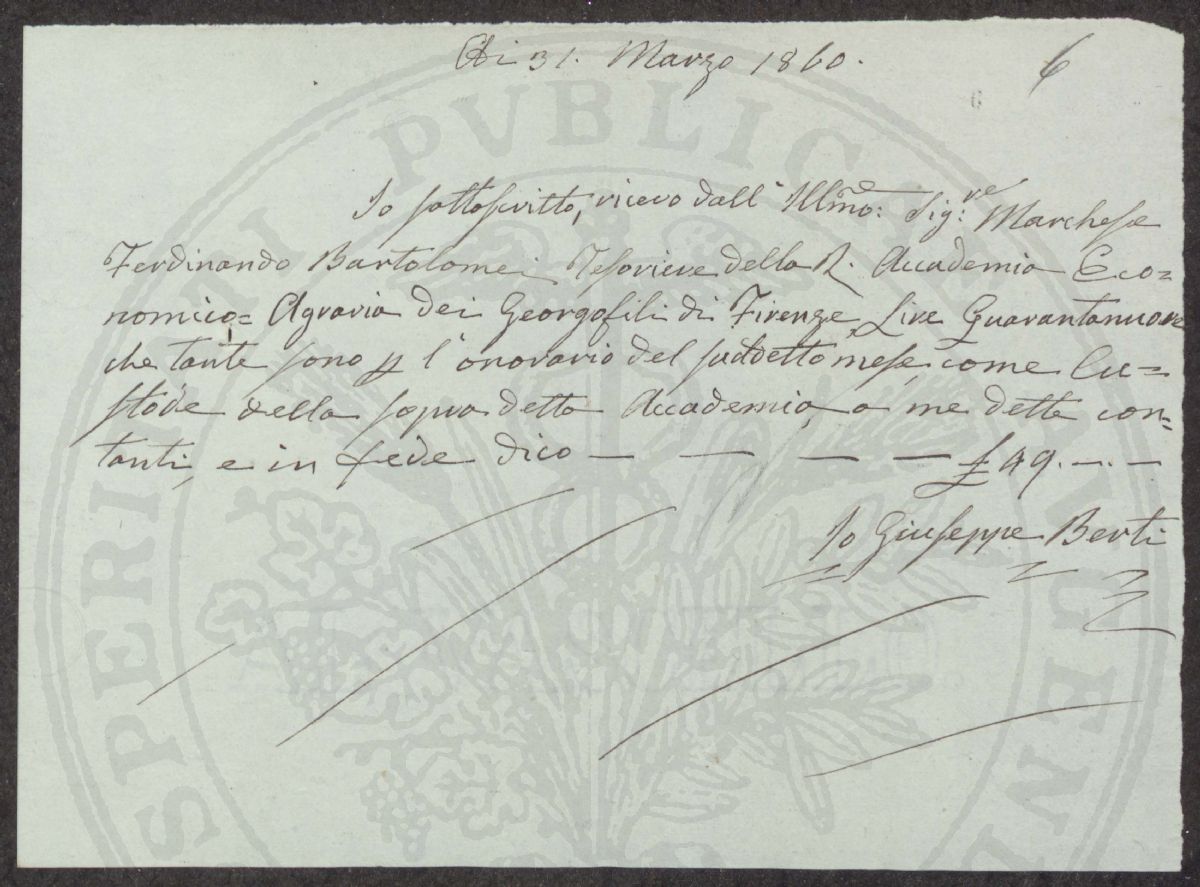 Adi 31. Marzo 1860.
6
6
Io sottoscritto, ricevo dall' Illmo: Sig:re Marchese
Ferdinando Bartolomei Tesoriere della R. Accademia Eco=
nomico= Agraria dei Georgofili di Firenze, Lire Quarantanuove
che tante sono p l'onorario del suddetto mese, come Cu=
stode della sopra detta Accademia, a me dette con=
tanti, e in fede dico — — — — £ 49. — . —
Io Giuseppe Berti
PROSPERITATI PVBLICAE AVGENDAE